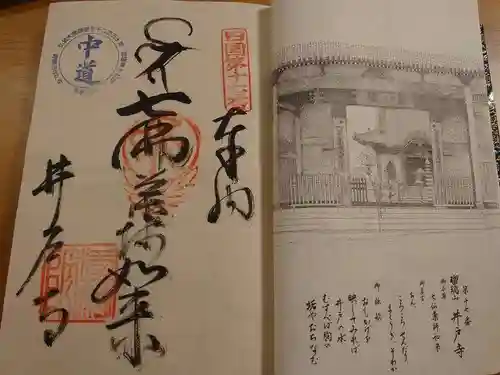 四国第十七番
奉納
七佛薬師如来
井戸寺
中道
第十七番
瑠璃山 井戸寺
七仏薬師如来
おん
ころころ せんだり
まとうぎ そわか
御詠歌
おもかげを
映してみれば
井戸の水
むすべば胸の
垢やおちなむ